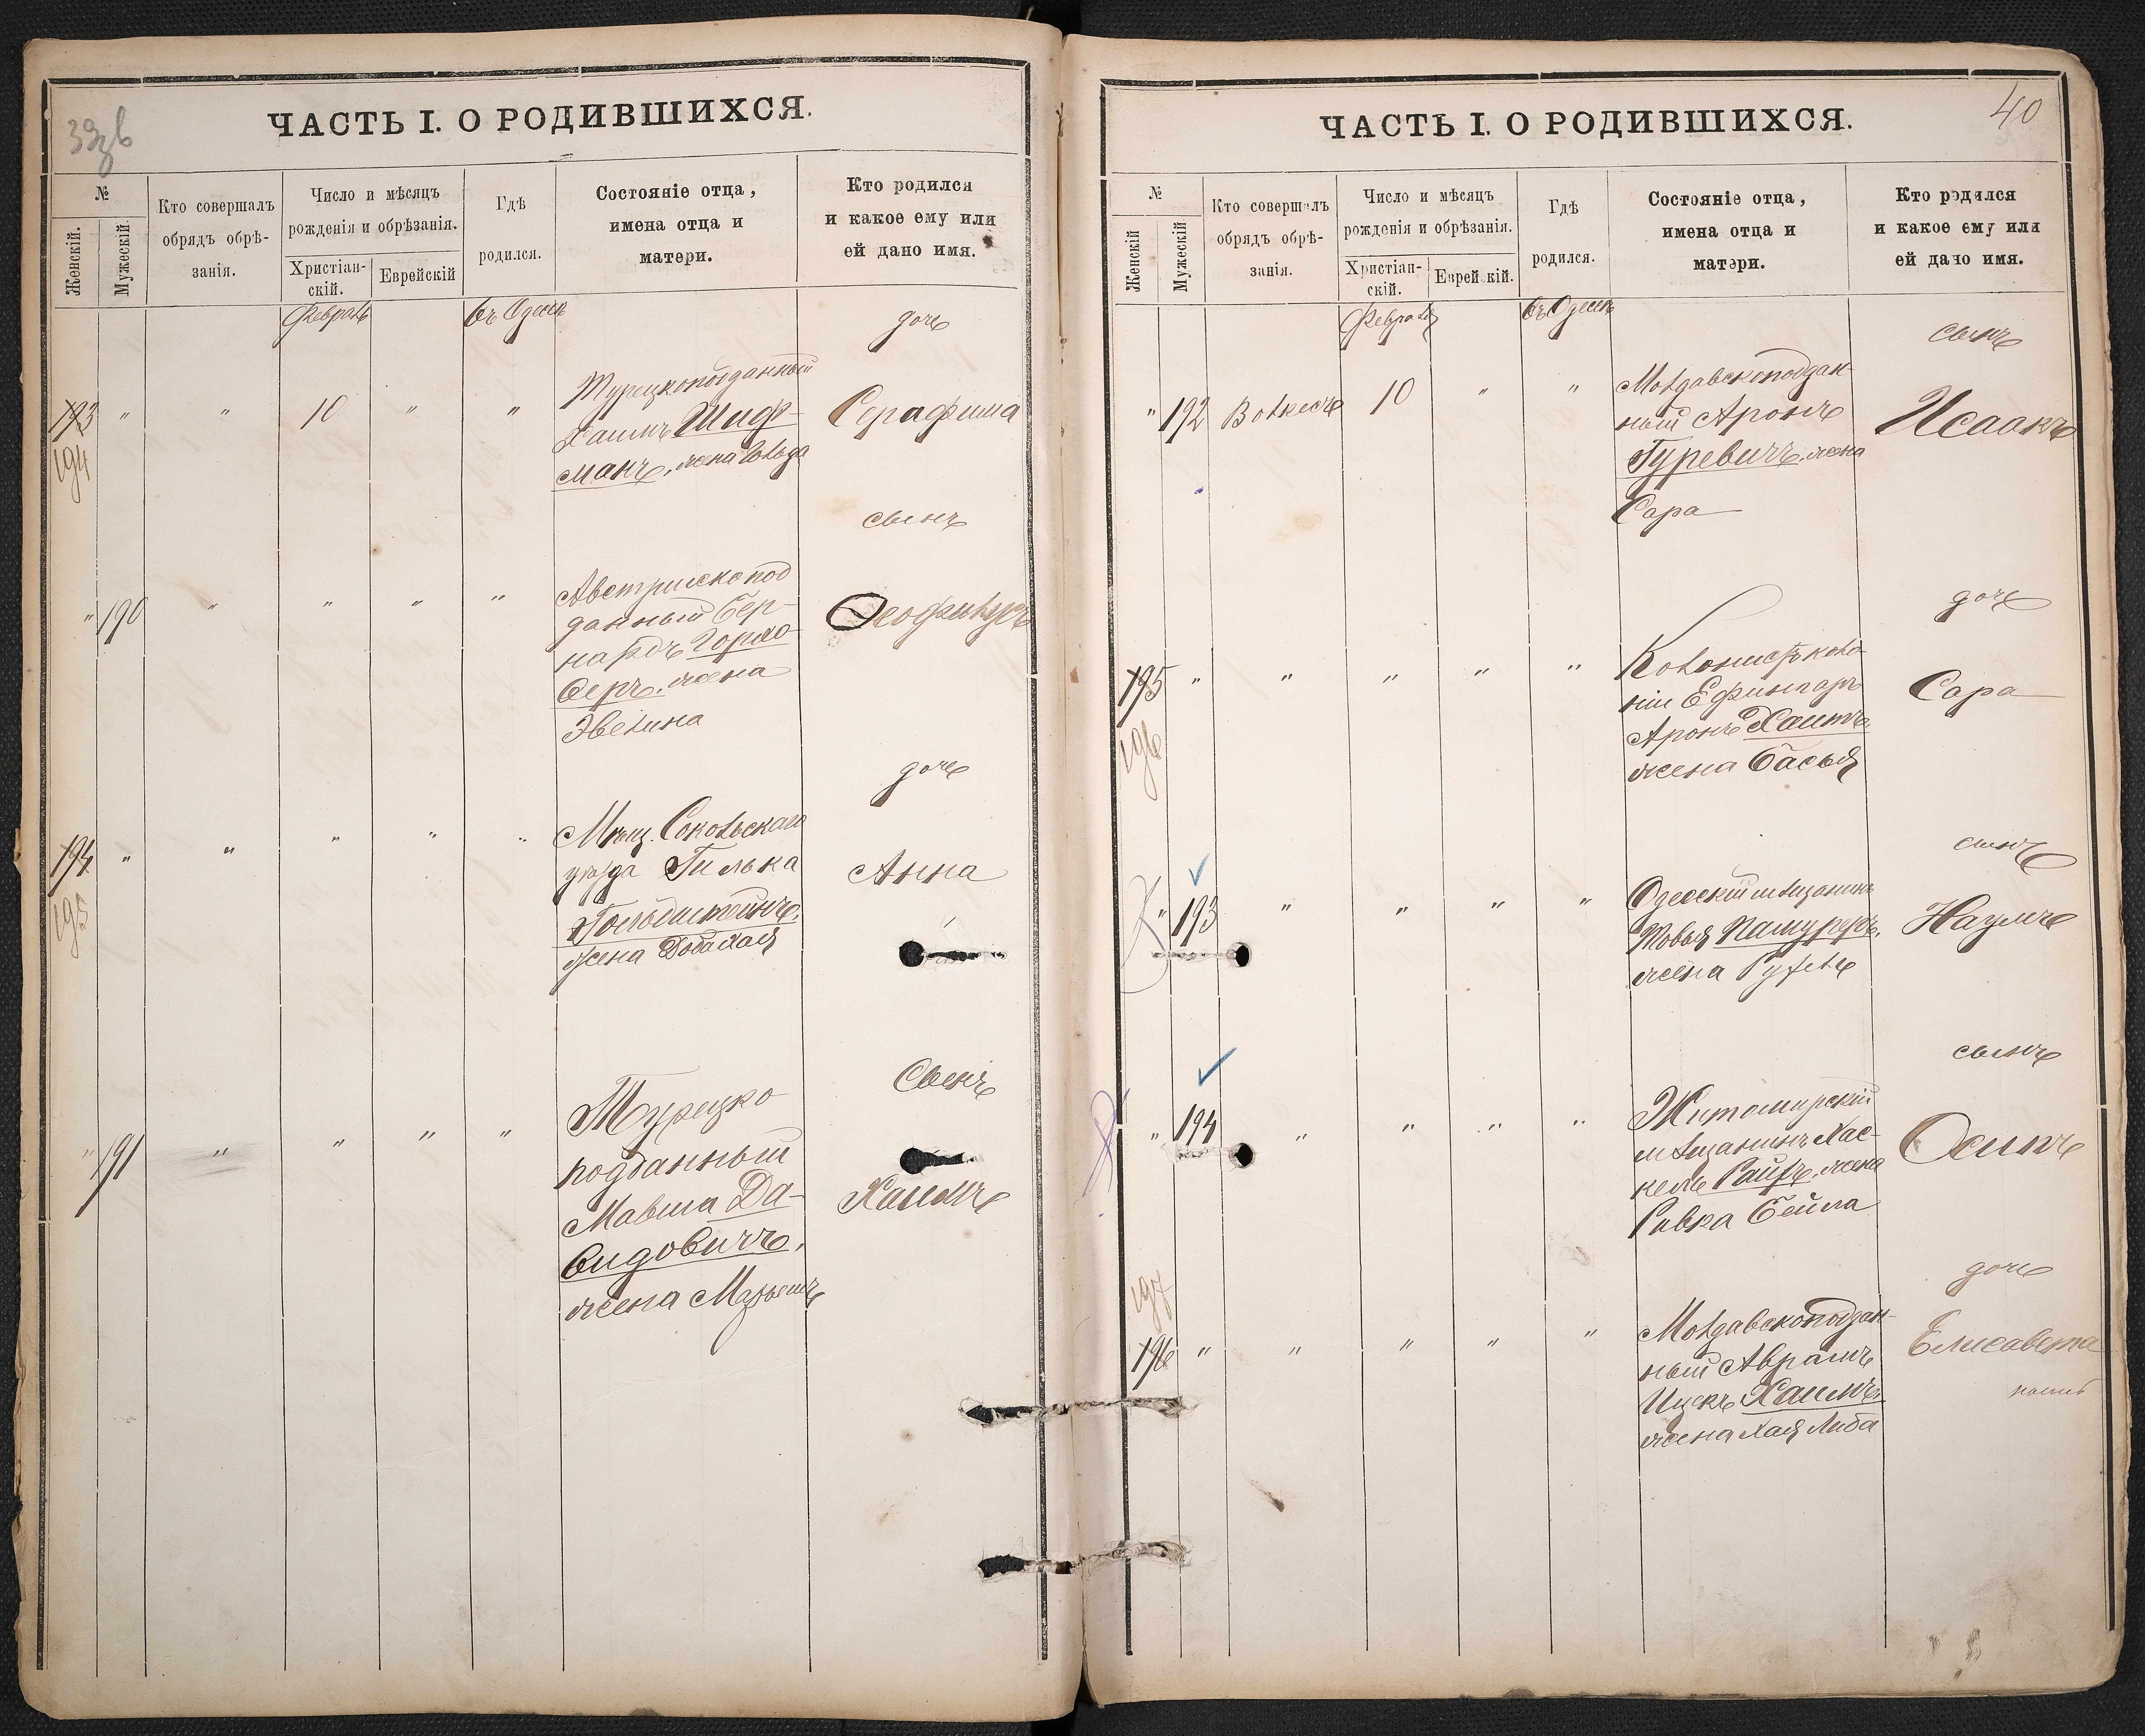 39 зв
ЧАСТЬ I. О РОДИВШИХСЯ.
№
Женскій.
Мужескій.
Кто совершалъ
обрядъ обрѣ-
занія.
Число и мѣсяцъ
рожденія и обрѣзанія.
Христіан-
скій.
Еврейскій
Гдѣ
родился.
Состояніе отца,
имена отца и
матери.
Кто родился
и какое ему или
ей дано имя.
Февраль
въ Одессѣ
дочь
193 " " 10 " "
194
Турецкоподданный
Хаимъ Шиф-
манъ, жена Гольда
Серафима
сынъ
" 190 " " " "
Австрійскопод
данный Бер-
нардъ
жена
Эвелина
Теофилусъ
дочь
194 " " " " "
195
Мѣщ. Сокольскаго
уѣзда Гилька
Гольдштейнъ,
жена Доба Хая
Анна
Сынъ
" 191 " " " "
Турецко
подданный
Мавша Да-
видовичъ,
жена Марьемъ
Хаимъ
40
ЧАСТЬ I. О РОДИВШИХСЯ.
№
Женскій
Мужескій
Кто совершалъ
обрядъ обрѣ-
занія.
Число и мѣсяцъ
рожденія и обрѣзанія.
Христіан-
скій.
Еврейскій.
Гдѣ
родился.
Состояніе отца,
имена отца и
матери.
Кто родился
и какое ему или
ей дано имя.
Февраля
въ Одессѣ
сынъ
" 192 10 " "
Молдавскоподдан-
ный Аронъ
Гуревичъ, жена
Сара
Исаакъ
дочь
195 " " " " "
196
Колонистъ коло-
ніи Ефингаръ
Аронъ Хаитъ,
жена Басья
Сара
сынъ
" 193 " " " "
Одесскій мѣщанинъ
Товья Пашуреръ,
жена Рухль
Наумъ
сынъ
" 194 " " " "
Житомирскій
мѣщанинъ Хас-
кель Райхъ, жена
Ривка Бейла
Осипъ
дочь
197
196 " " " " "
Молдавскоподдан-
ный Аврамъ
Ицекъ Хаимъ,
жена Хая Либа
Елисавета